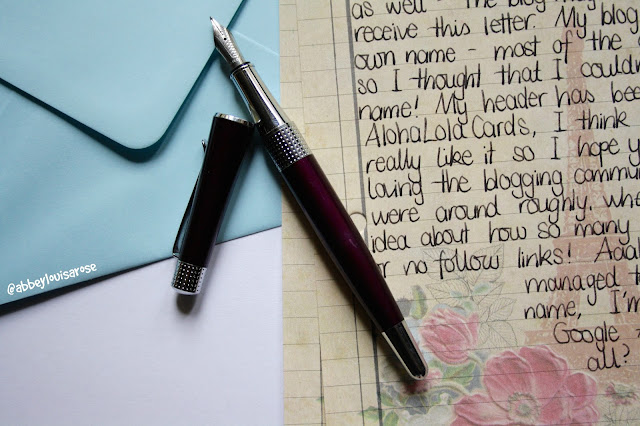 as well - The blog may
receive this letter. My blog
own name - most of the
so I thought that I couldn
name! My header has bee
AlohaLola Cards, I think
really like it so I hope y
loving the blogging commu
were around roughly, whe
idea about how so many
or no follow links!
managed t
name, I'm
Google
all?
@abbeylouisarose